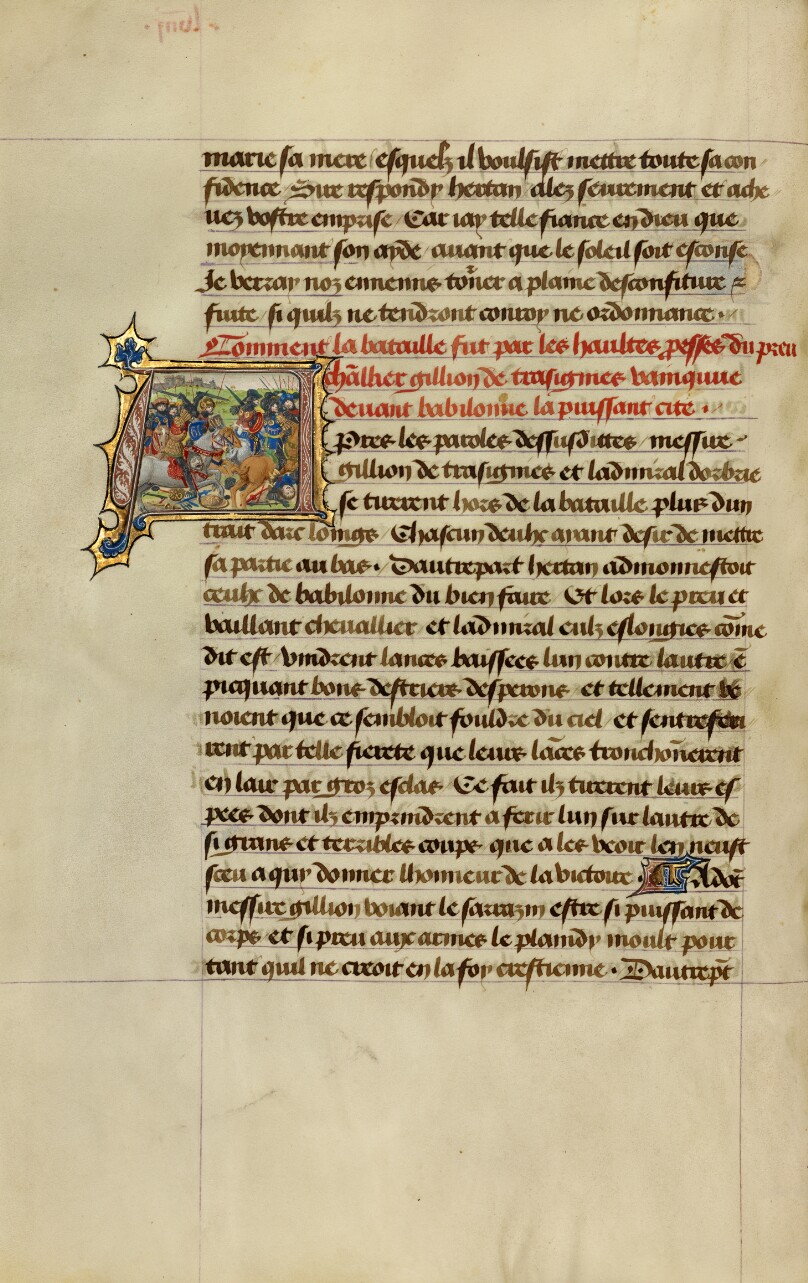 marie sa mere esquelz il voulsist mettre toute sa con
fidence Sire respondy hertan alez seurement et ache
vez vostre emprise Car iay telle fiance en dieu que
moyennant son ayde auant que le soleil soit esconse
Je verray noz ennemis to᷑ner a plaine desconfiture z
fuite si quilz ne tendront conroy ne ordonnance .
Comment la bataille fut par les haultes p̲esses du preu
cħallier gillion de trasignies vainquue
deuant babilonne la puissant cite .
Apres les paroles dessusdittes messire
gillion de trasignies et ladmiral dorbrie
se tirerent hors de la bataille plus dun
trait darc loings Chascun deulx ayant desir de mettre
sa partie au bas . Dautrepart hertan admonnestoit
ceulx de babilonne du bien faire Et lors le preu et
vaillant cheuallier et ladmiral eulz eslongies cōme
dit est vindrent lances baissees lun contre lautre ē
picquant bons destriers desperons et tellement ve
noient que ce sembloit fouldre du ciel et sentreferi
rent par telle fierete que leurs lāces tronchōnerent
en lair par groz esclas Ce fait ilz tirerent leurs es
pees dont ilz emprindrent a ferir lun sur lautre de
si grans et terribles coups que a les veoir len neust
sceu a quy donner lhonneur de la victoire . Adōt
messire gillion voiant le sarrazin estre si puissant de
corps et si preu aux armes le plaindy moult pour
tant quil ne creoit en la foy crestienne . Dautrep̄t